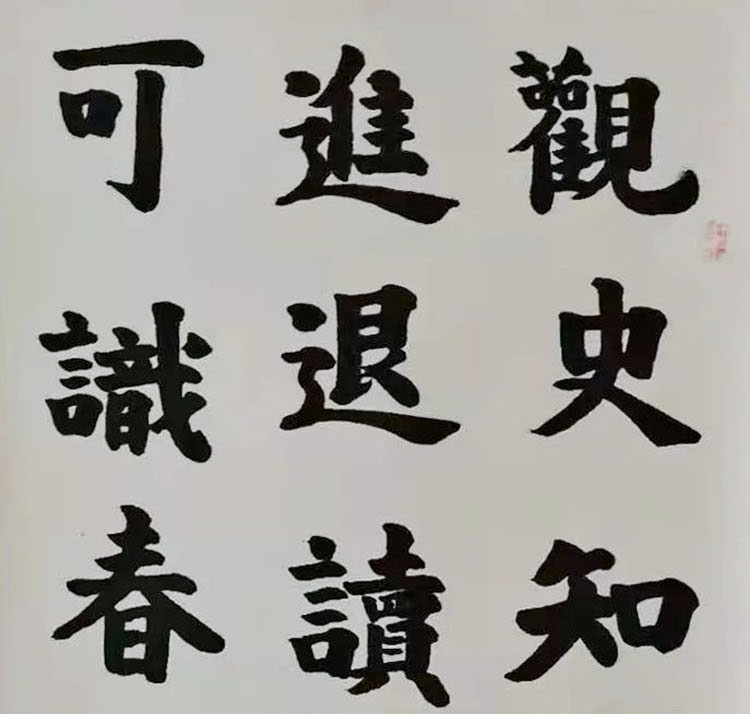 觀史知
進退讀
可識春